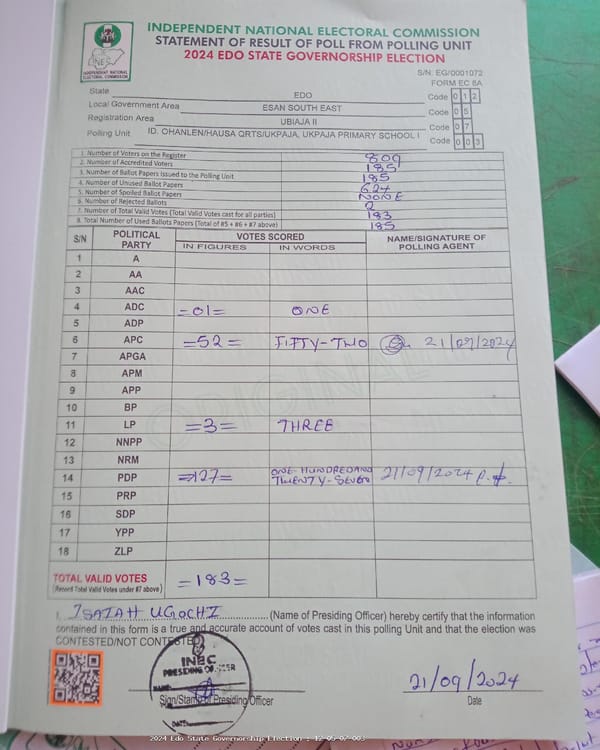 INDEPENDENT NATIONAL ELECTORAL COMMISSION
STATEMENT OF RESULT OF POLL FROM POLLING UNIT
2024 EDO STATE GOVERNORSHIP ELECTION
INEC
INDEPENDENT NATIONAL ELECTORAL COMMISSION
S/N: EG/0001072
FORM EC 8A
State EDO Code 0 1 2
Local Government Area ESAN SOUTH EAST Code 0 5
Registration Area UBIAJA II Code 0 7
Polling Unit ID. OHANLEN/HAUSA QRTS/UKPAJA, UKPAJA PRIMARY SCHOOL I Code 0 0 3
1. Number of Voters on the Register 809
2. Number of Accredited Voters 185
3. Number of Ballot Papers Issued to the Polling Unit 185
4. Number of Unused Ballot Papers 624
5. Number of Spoiled Ballot Papers NONE
6. Number of Rejected Ballots 2
7. Number of Total Valid Votes (Total Valid Votes cast for all parties) 183
8. Total Number of Used Ballots Papers (Total of #5 + #6 + #7 above) 185
S/N POLITICAL PARTY VOTES SCORED NAME/SIGNATURE OF POLLING AGENT
IN FIGURES IN WORDS
1 A
2 AA
3 AAC
4 ADC =01= ONE
5 ADP
6 APC =52= FIFTY-TWO 21/09/2024
7 APGA
8 APM
9 APP
10 BP
11 LP =3= THREE
12 NNPP
13 NRM
14 PDP =127= ONE-HUNDREDAND TWENTY-SEVEN 21/09/2024
15 PRP
16 SDP
17 YPP
18 ZLP
ORIGINAL
TOTAL VALID VOTES =183=
(Record Total Valid Votes under #7 above)
I, ISAIAH UGOCHI (Name of Presiding Officer) hereby certify that the information
contained in this form is a true and accurate account of votes cast in this polling Unit and that the election was
CONTESTED/NOT CONTESTED
INEC
PRESIDING OFFICER
NAME:
DATE:
21/09/2024
Sign/Stamp of Presiding Officer Date
2024 Edo State Governorship Election : 12-05-07-003